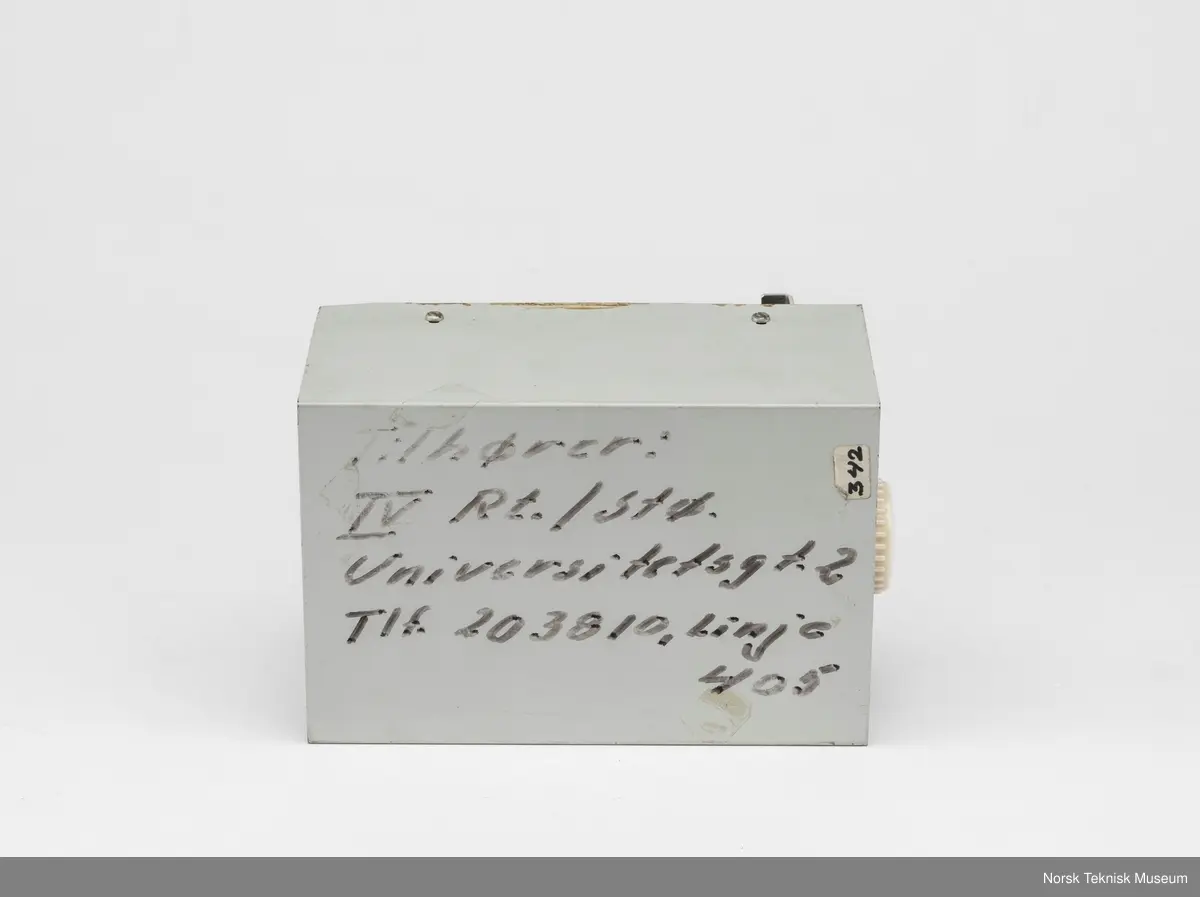 Tilhører:
IV Rt./Stø.
Universitetsgt. 2
Tlf. 203810, Linje
405
342
Norsk Teknisk Museum